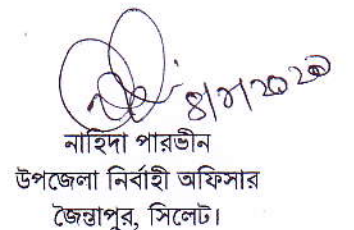 নাহিদা পারভীন
উপজেলা নির্বাহী অফিসার
জৈন্তাপুর, সিলেট।